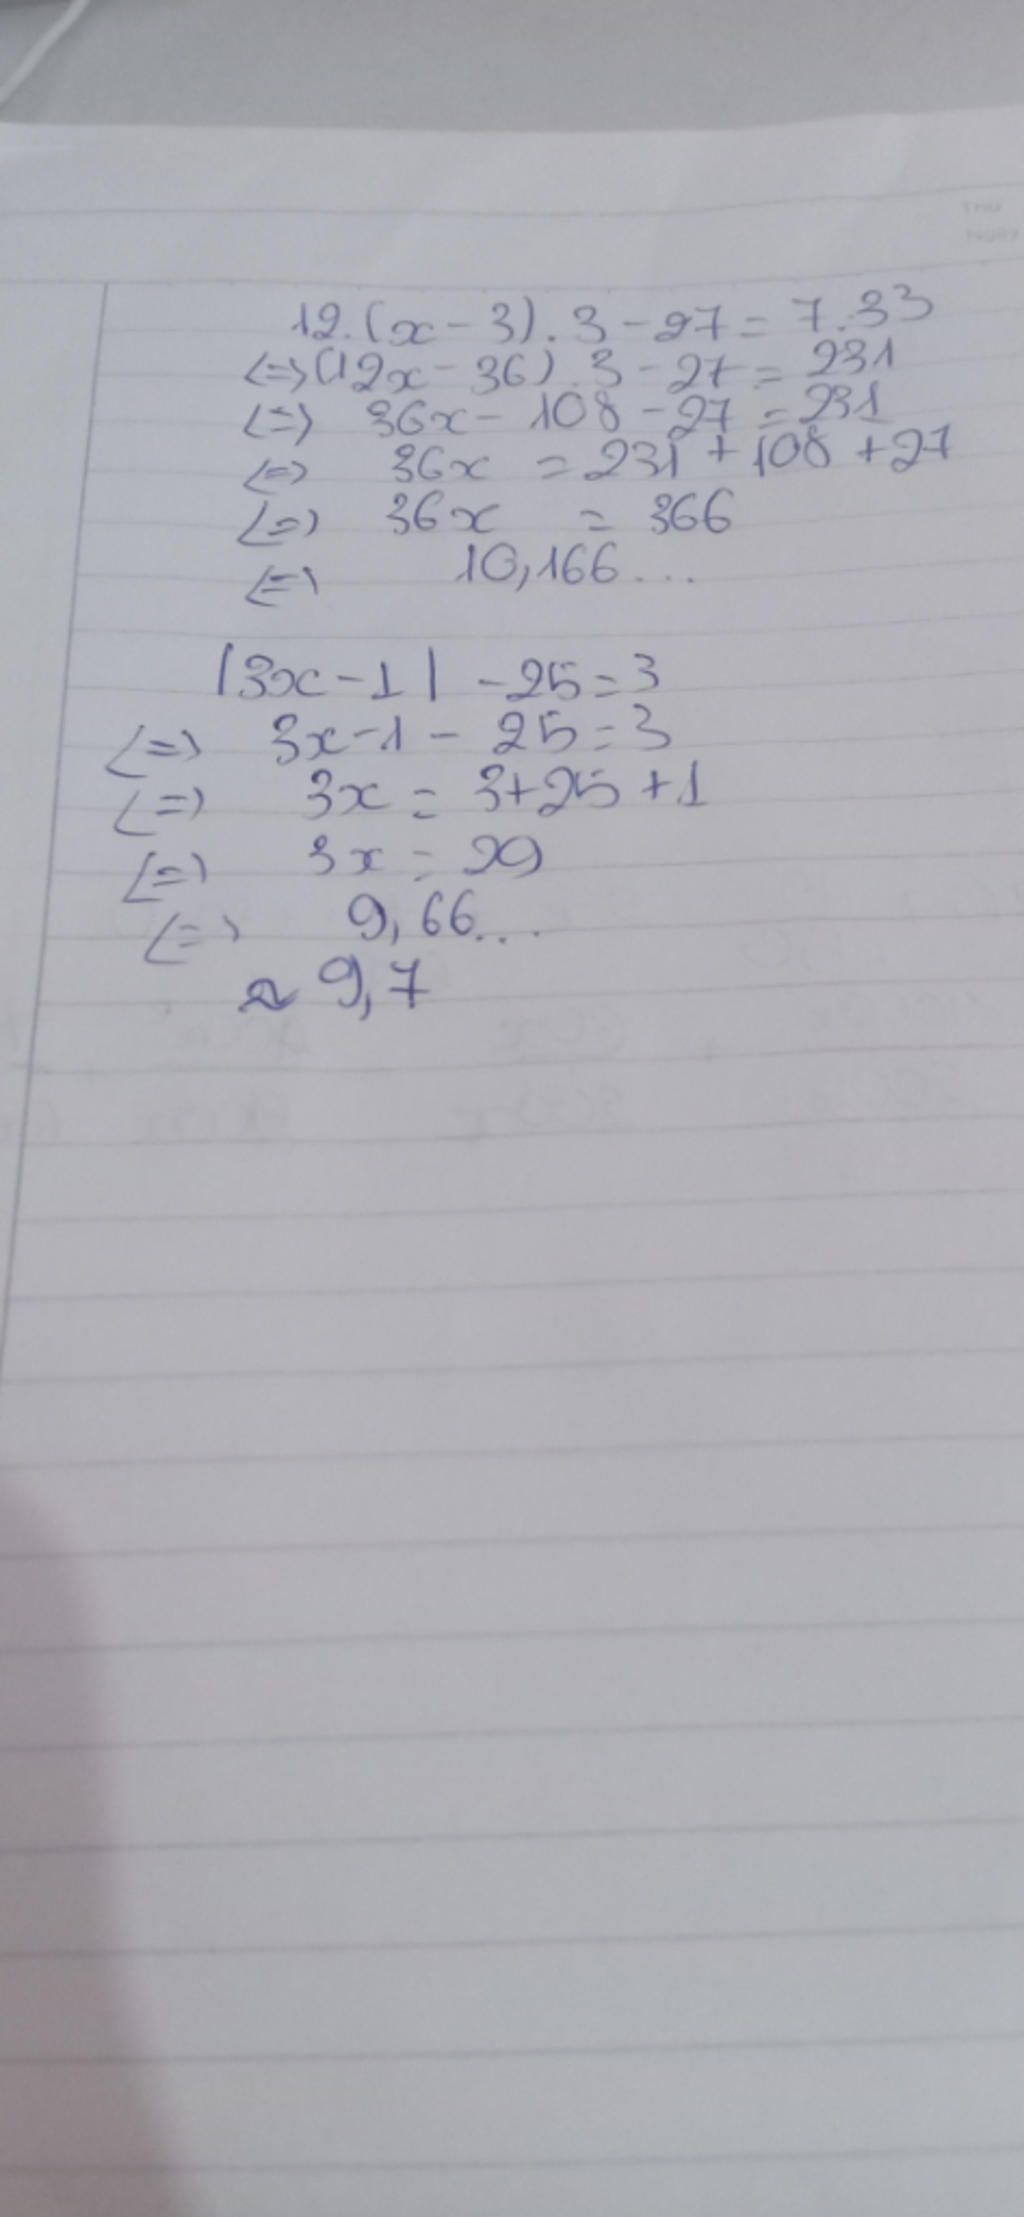 Thứ
Ngày
12.(x-3).3-27=7.33
<=>(12x-36).3-27=231
<=> 36x-108-27=231
<=> 36x =231+108+27
<=> 36x = 366
<=> 10,166...
|3x-1|-25=3
<=> 3x-1-25=3
<=> 3x=3+25+1
<=> 3x=29
<=> 9,66...
≈ 9,7